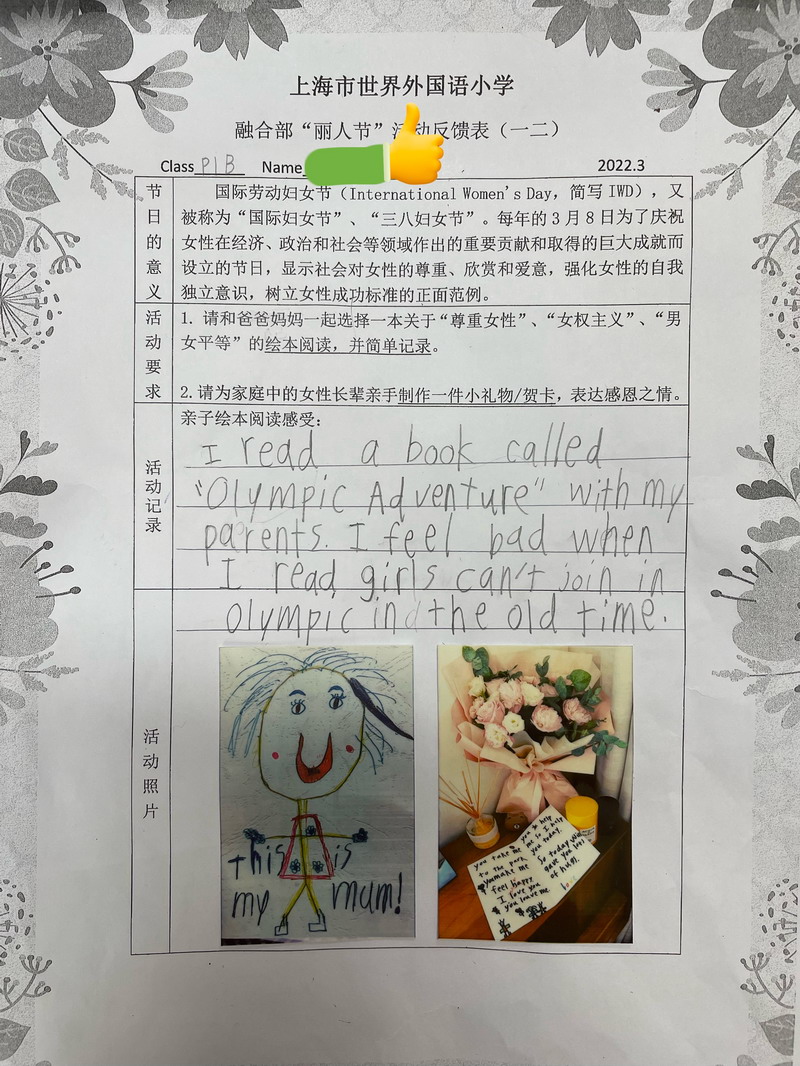 上海市世界外国语小学
融合部“丽人节”活动反馈表（一二）
Class P1B Name 2022.3
节日的意义
国际劳动妇女节（International Women's Day，简写 IWD），又
被称为“国际妇女节”、“三八妇女节”。每年的 3 月 8 日为了庆祝
女性在经济、政治和社会等领域作出的重要贡献和取得的巨大成就而
设立的节日，显示社会对女性的尊重、欣赏和爱意，强化女性的自我
独立意识，树立女性成功标准的正面范例。
活动要求
1. 请和爸爸妈妈一起选择一本关于“尊重女性”、“女权主义”、“男
女平等”的绘本阅读，并简单记录。
2. 请为家庭中的女性长辈亲手制作一件小礼物/贺卡，表达感恩之情。
活动记录
亲子绘本阅读感受：
I read a book called
"Olympic Adventure" with my
parents. I feel bad when
I read girls can't join in
Olympic in the old time.
活动照片
this is
my mum!
you take me
to the park
you make me
feel happy
I love you
you love me
you help
me so I help
you today.
So today
gave you lots
of hugs.